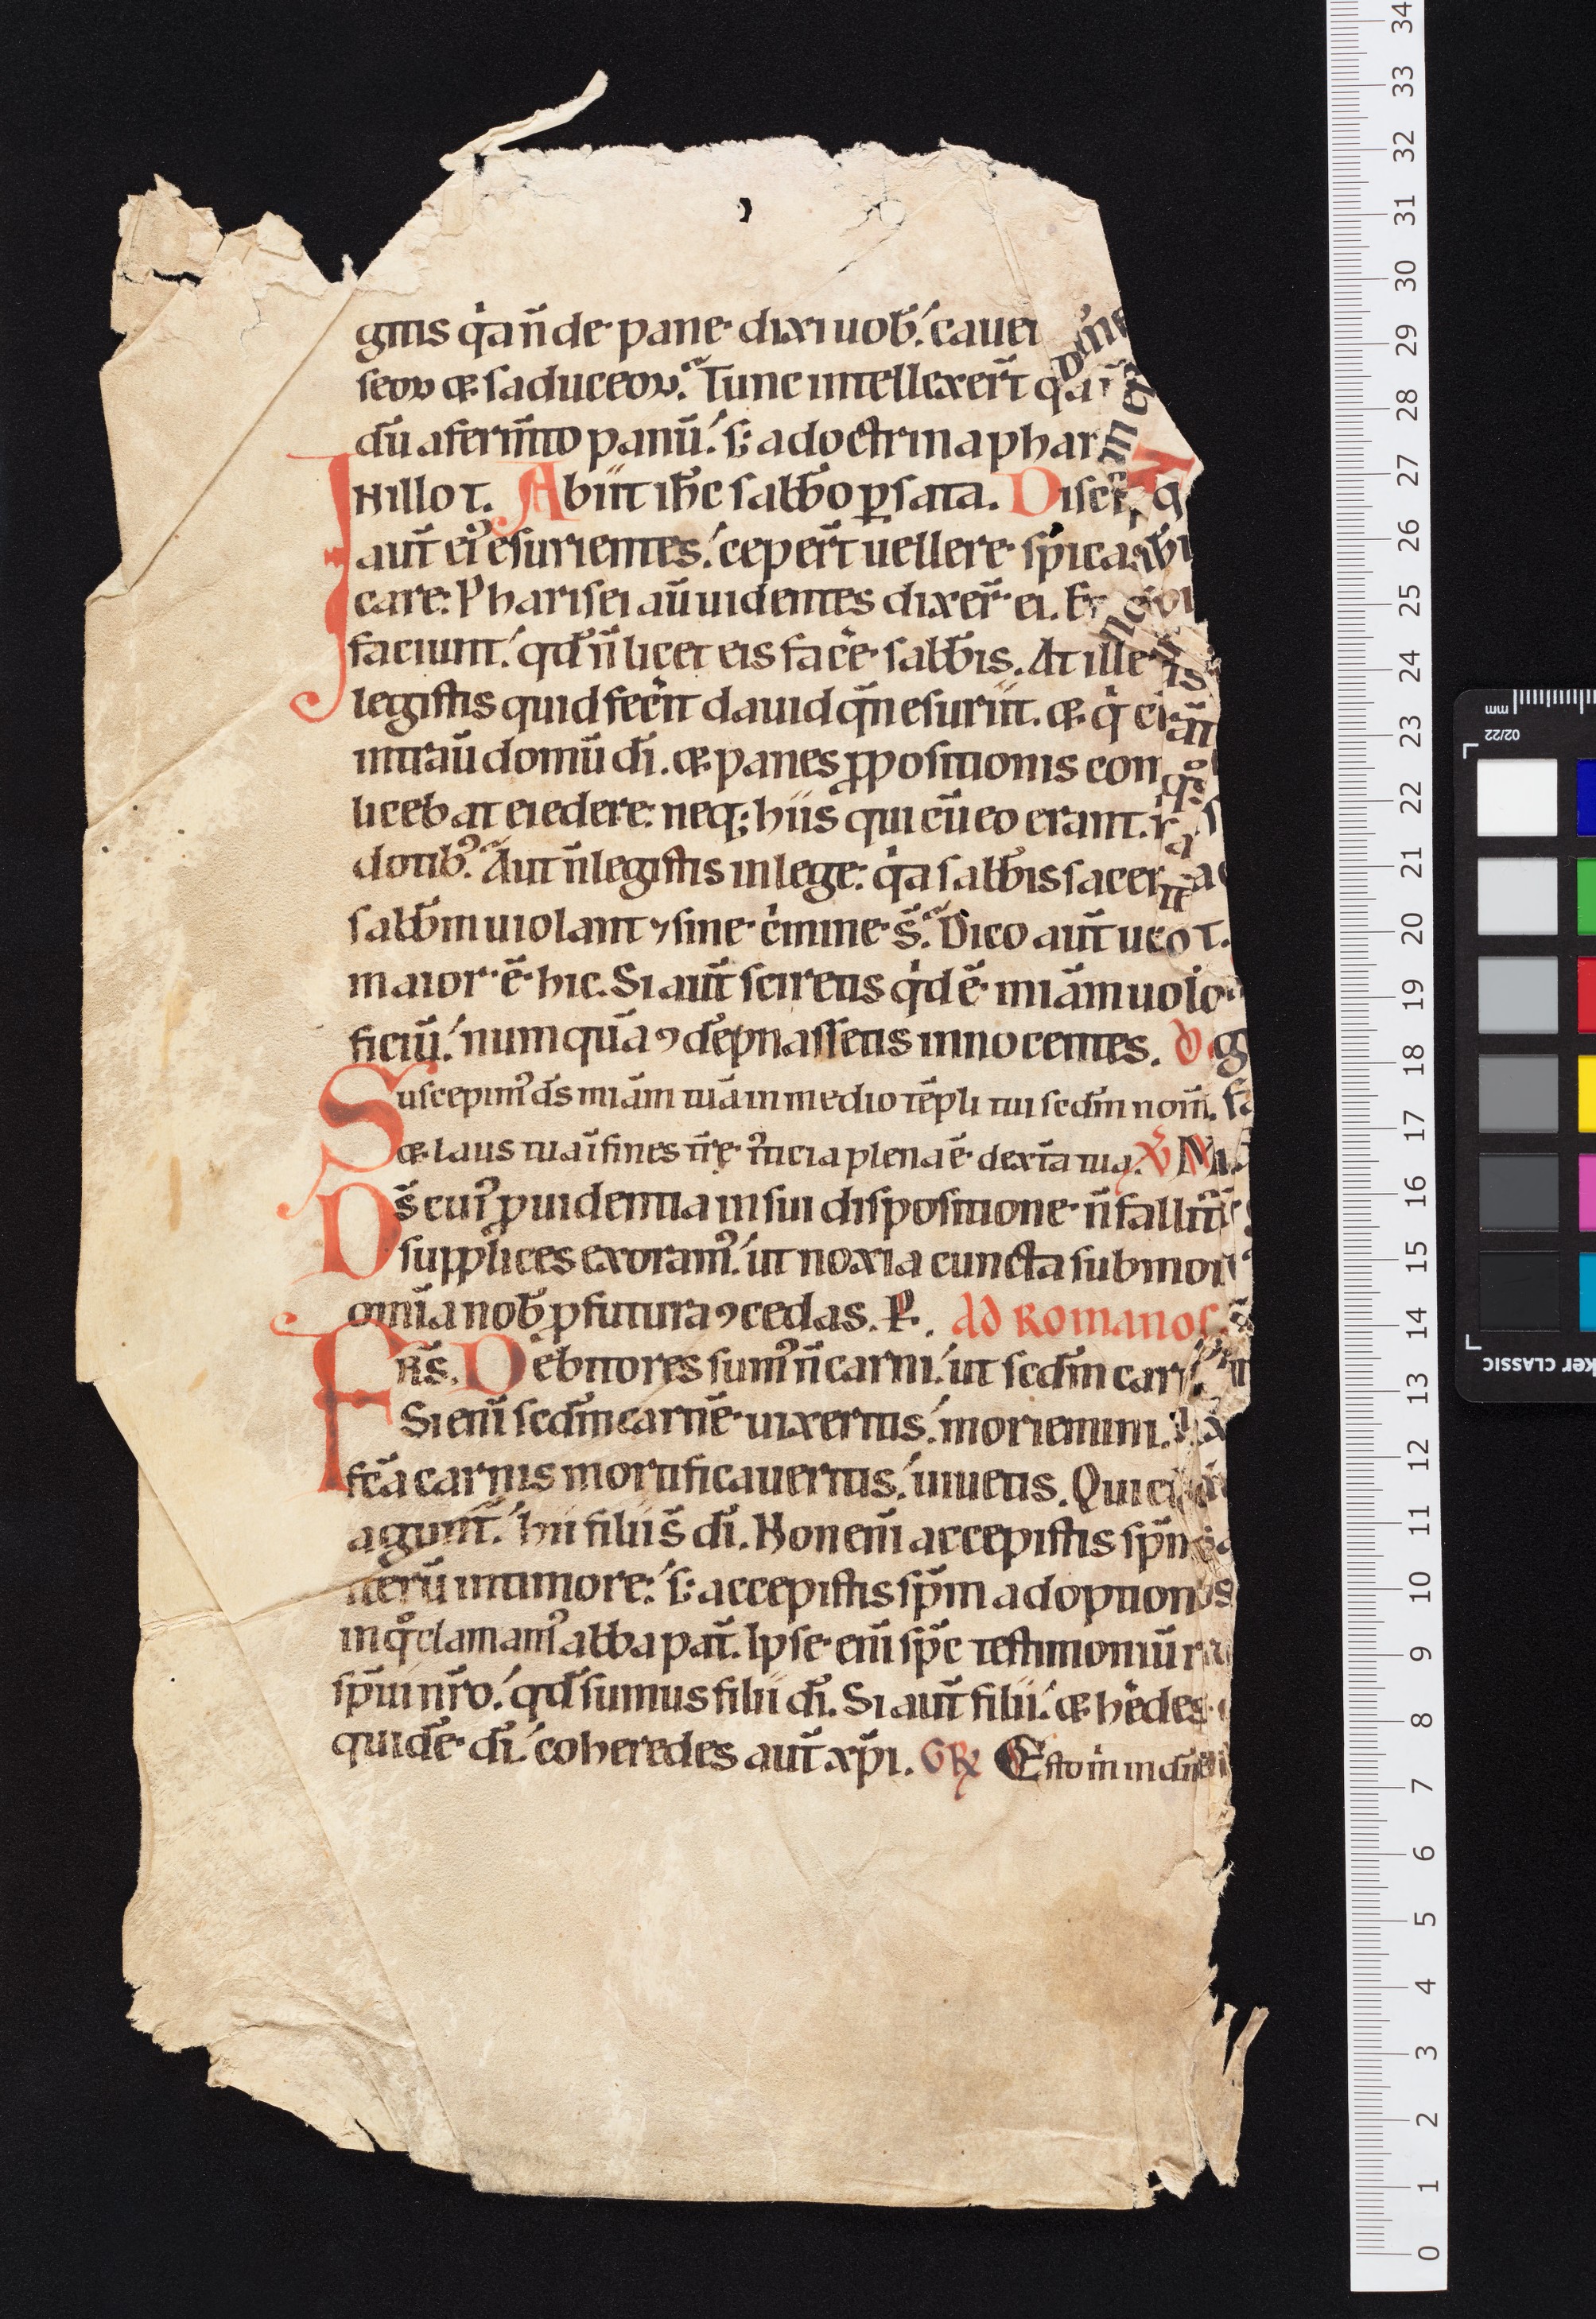 gitis q̇a n̄ de pane dixi uob̄. caue
seoꝝ & saduceoꝝ. Tunc intellexer̄t qa
dū a fermto panū. s; a doctrina phar
IN illo t. Abiit ih̄c sabb̄o ꝑ sata. Disci
aūt ei᾿ esurientes. ceper̄t uellere spica
care. Pharisei aū uidentes dixer̄ ei. Ec
faciunt. qd̄ n̄ licet eis fac̄e sabb̄is. At ille
legistis quid fec̄it dauid qn̄ esuriit. & q̇ c
intrau̅ domū dī. & panes ꝓpositionis com
licebat ei edere. neq; hiis qui cū eo erant.
dotib᾿. Aut n̄ legistis in lege. q̇a sabb̄is sacer
sabb̄m uiolant ⁊ sine c̄imine s̄. Dico aūt uo
maior ē hic. Si aūt sciretis q̇d ē miām uolo
ficiū. numquā ꝯdēpnassetis innocentes.
Suscepim᾿ ds̄ miām tuā in medio tēpli tui scdm̄ nom̄.
& laus tua ī fines tr̄e. iusticia plena ē dext̄a tua. ℣
Ds̄ cui᾿ ꝓuidentia in sui dispositione n̄ fallit̄
supplices exoram᾿. ut noxia cuncta submo
om̄ia nob̄ ꝓfutura ꝯcedas. P. Ad Romanos.
FRs̄. Debitores sum᾿ n̄ carni. ut scdm̄ car
Si eni̅ scdm̄ carnē uixeritis. moriemini.
fc̄a carnis mortificaueritis. uiuetis. Qui
agunt̄. hii filii s̄ dī. Non eni̅ accepistis spm̄
iterū in timore. s; accepistis spm̄ adoption
in q̊ clamam᾿ abba pat̄. Ipse eni̅ sp̄c testimoniū r
sp̄ui nr̄o. qd̄ sumus filii dī. Si aūt filii. & hēdes
quidē dī. coheredes aūt xp̄i. GR Esto m̄ in dm̄